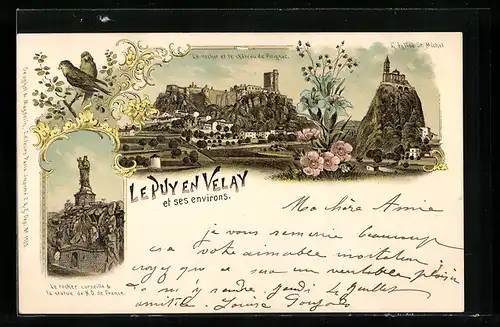 Le rocher et le château de Polignac.
L'Église St. Michel
LE PUY EN VELAY
et ses environs.
Le rocher corneille &
la statue de N.D. de France.
Ma chère Amie
je vous remercie beaucoup
votre aimable invitation
croyez que ce sera un véritable plaisir
m'y rendre jeudi
amitiés. Louise